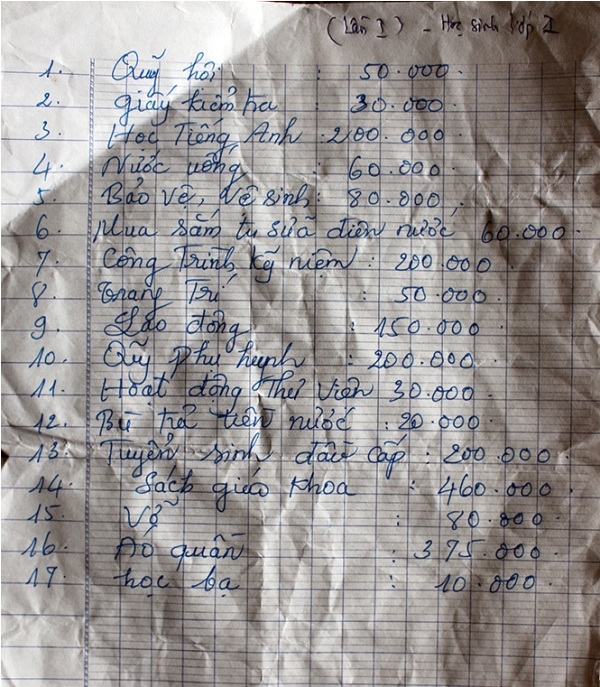 (Lần I) - Học sinh lớp I
1. Quỹ hội : 50.000.
2. giấy kiểm tra : 30.000.
3. Học Tiếng Anh 200.000
4. Nước uống : 60.000.
5. Bảo vệ, vệ sinh: 80.000.
6. Mua sắm tu sữa điện nước 60.000.
7. Công Trình kỹ niệm : 200.000
8. Trang Trí : 50.000.
9. Lao động : 150.000
10. Quỹ phụ huynh : 200.000.
11. Hoạt động Thư viên 30.000.
12. Bù trả tiền nước : 20.000.
13. Tuyển sinh đầu cấp : 200.000.
14. Sách giáo khoa : 460.000.
15. Vỡ : 80.000.
16. Áo quần : 375.000.
17. học bạ : 10.000.